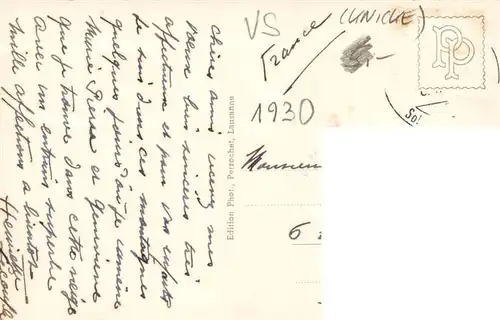 chers amis recevez mes
vœux bien sincères très
affectueux et pour vos enfants
je suis dans ces montagnes
quelques jours où je ramène
Marie Pierre et Geneviève
que je trouve dans cette neige
avec un entrain superbe
mille affections à bientôt
Henriette
Edition Phot., Perrochet, Lausanne
VS
France
(CLINIQUE)
1930
PP
Monsieur
6